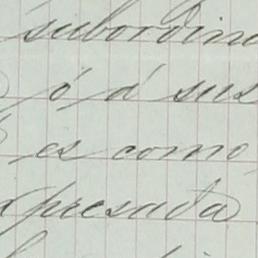 subordina
ó á sus
es como
xpresada